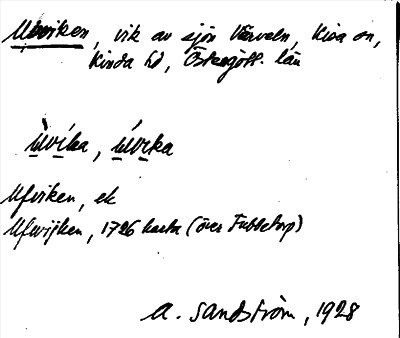 Ulviken, vik av sjön Värveln, Kisa sn,
Kinda hd, Östergötl. län
ùlvíka, ùlvika
Ulviken, ek
Ulfwijken, 1726 karta (över Fubbetorp)
A. Sandström, 1928